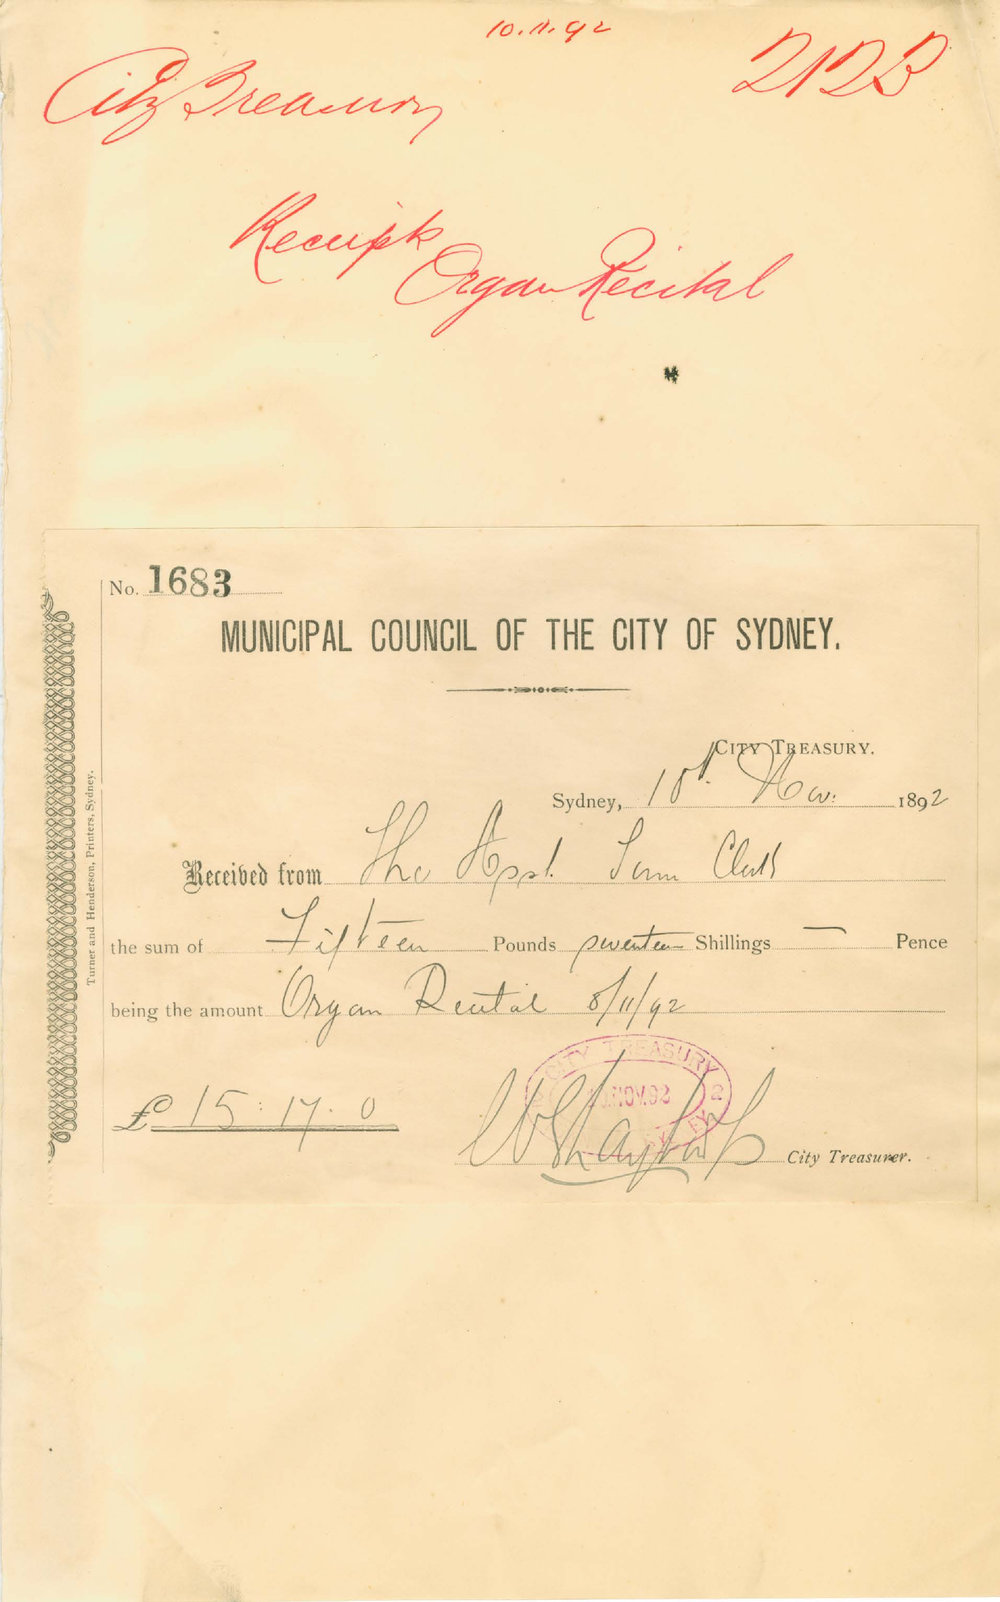 10.11.92
2123
City Treasury
Receipt
Organ Recital
No. 1683
MUNICIPAL COUNCIL OF THE CITY OF SYDNEY.
CITY TREASURY.
Sydney, 10th. Nov: 1892
Received from The Asst. Town Clerk
the sum of Fifteen Pounds seventeen Shillings — Pence
being the amount Organ Recital 8/11/92
£ 15 : 17 . 0
CITY TREASURY
NOV.92
SYDNEY
City Treasurer.
Turner and Henderson, Printers, Sydney.